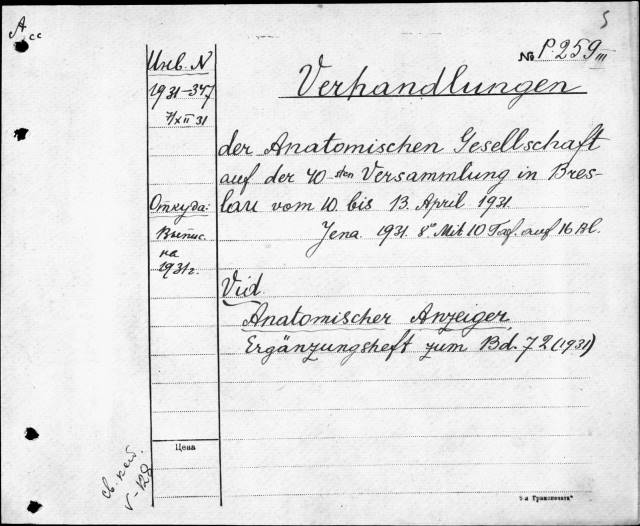 5
A cc
№ P.259 III
Инв. N
1931-347
7/XII 31
Откуда:
Выпис.
на
1931г.
Verhandlungen
der Anatomischen Gesellschaft
auf der 40-sten Versammlung in Bres-
lau vom 10. bis 13. April 1931.
Jena. 1931. 8° Mit 10 Taf. auf 16 Bl.
Vid.
Anatomischer Anzeiger,
Ergänzungsheft zum Bd. 72 (1931)
Цена
V-128
5-я Гранпечать"